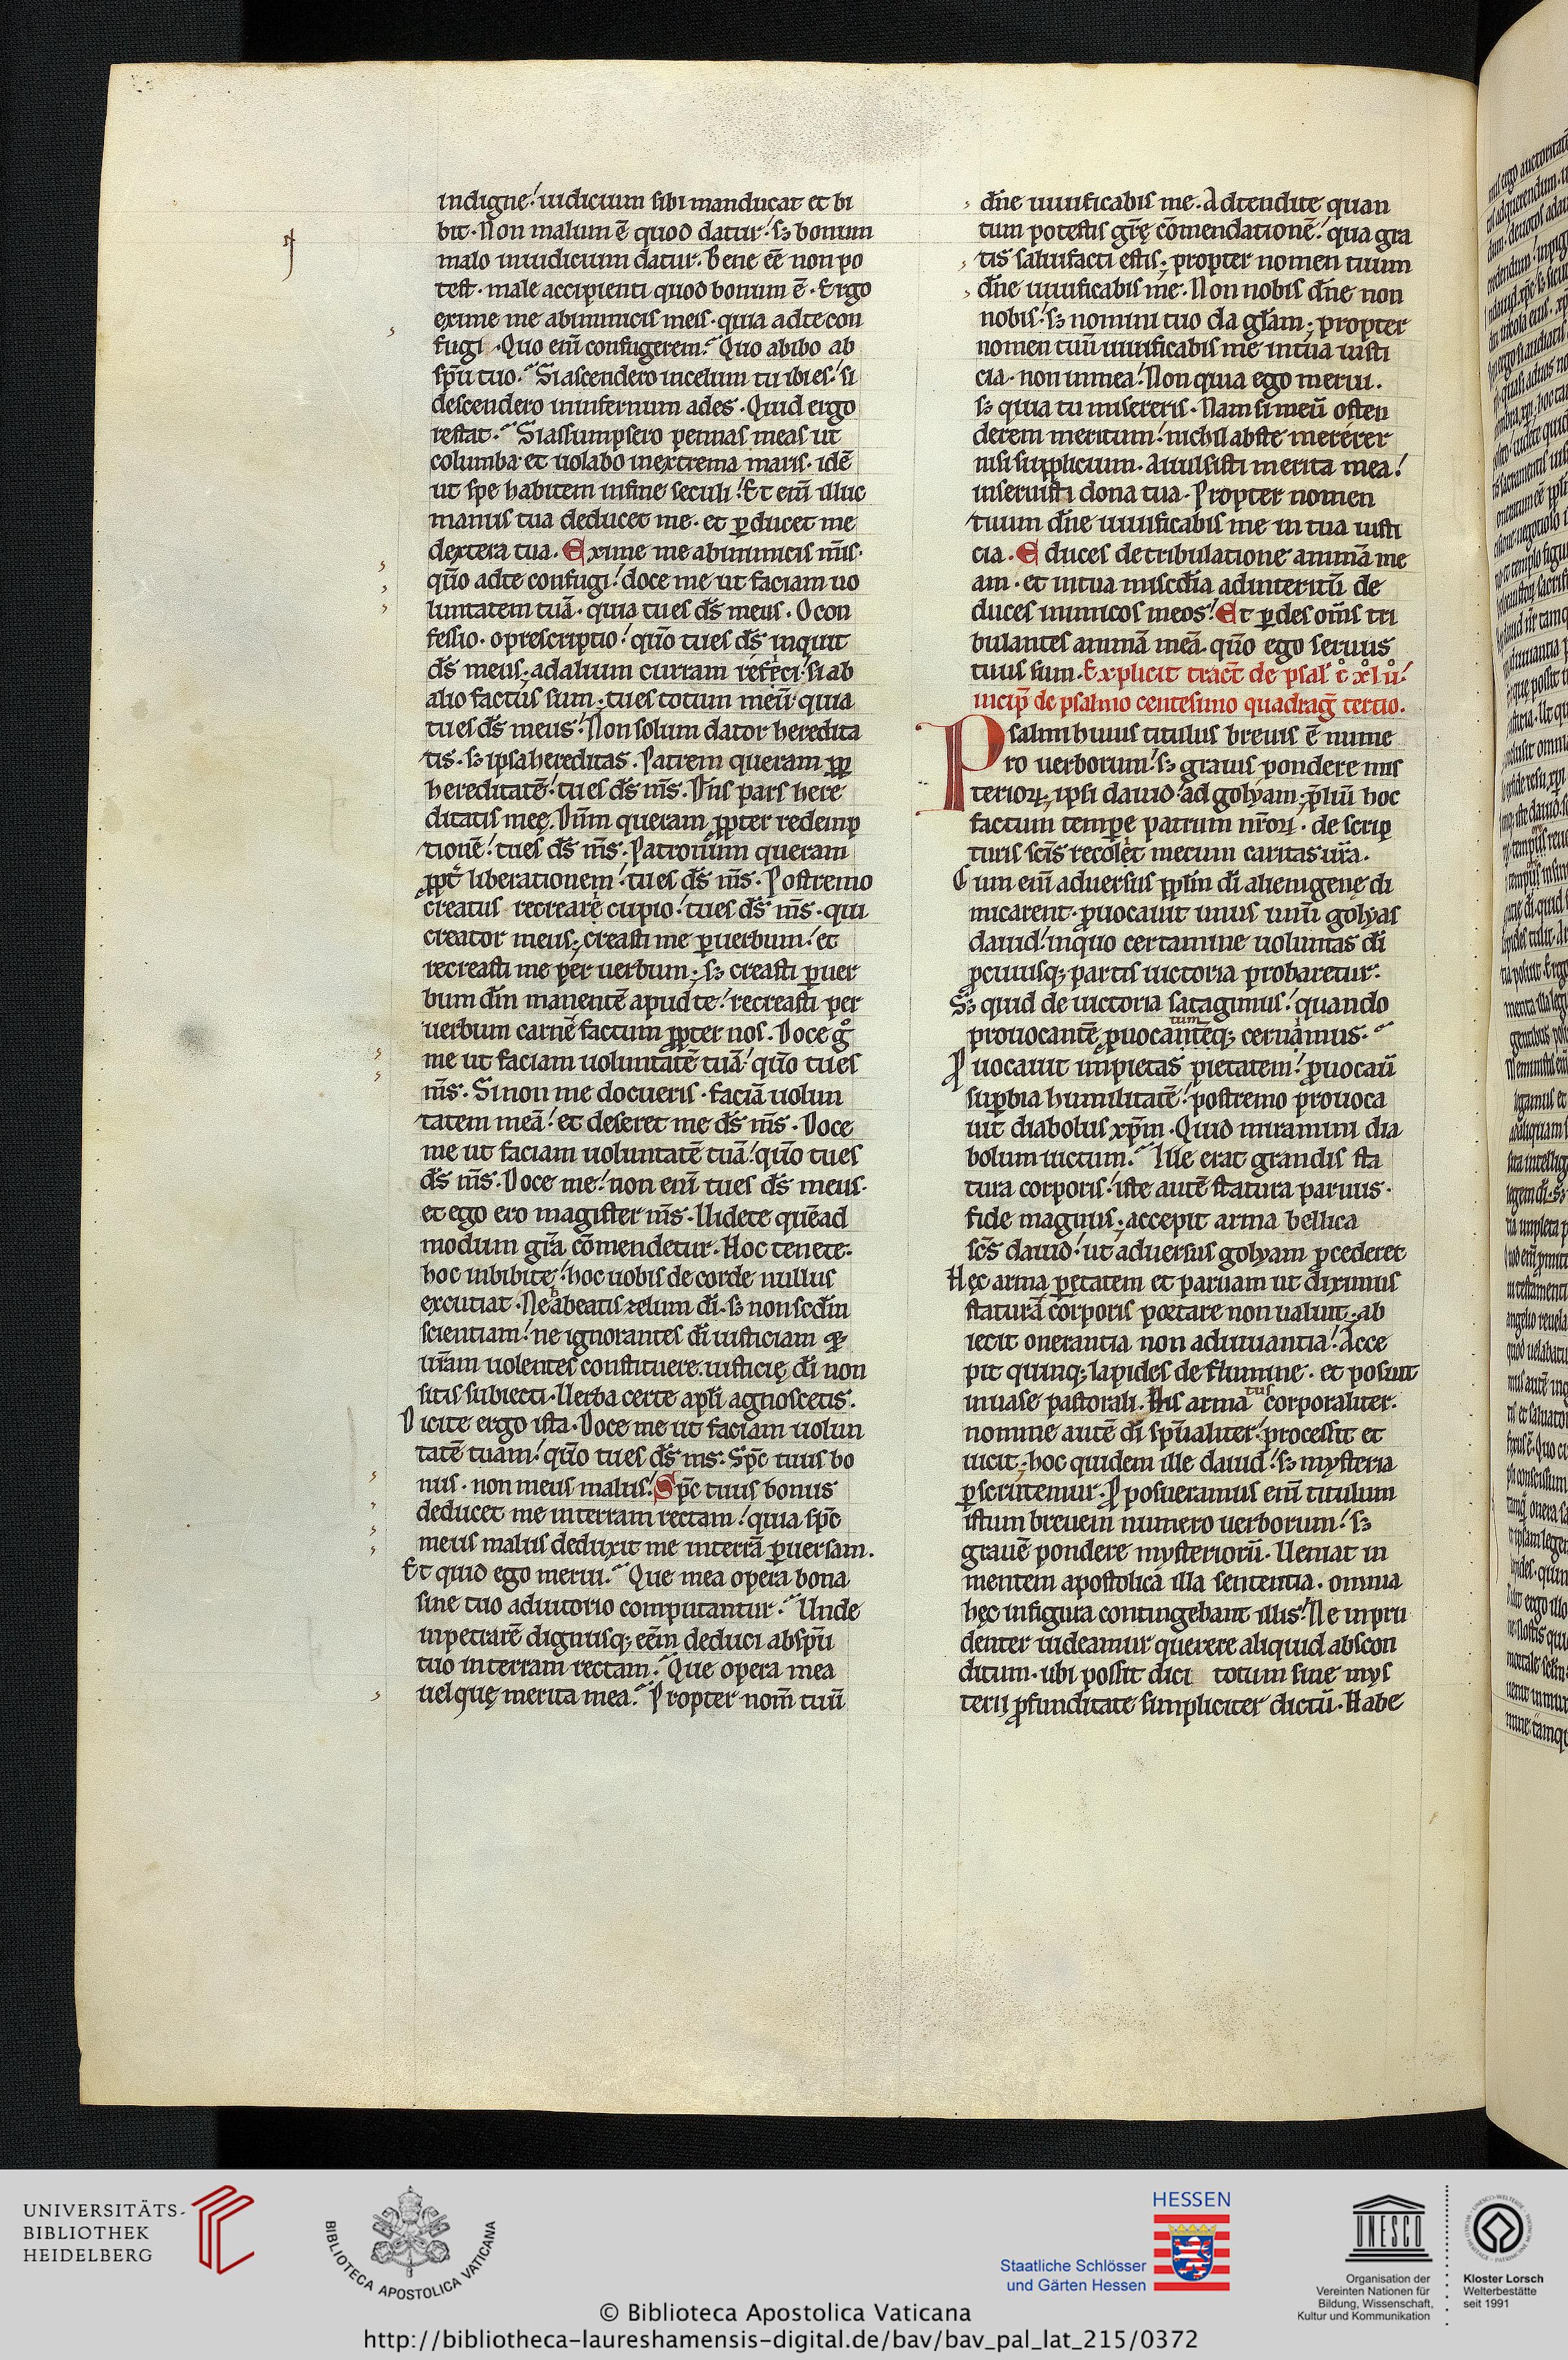 indigne! iudicium sibi manducat et bi
bit. Non malum ē quod datur! sꝫ bonum
malo iniudicium datur. Bene eē non po
test. male accipienti quod bonum ē. Ergo
exime me abinimicis meis. quia adte con
fugi. Quo eni᷒ confugerem? Quo abibo ab
sp̄u tuo? Si ascendero incelum tu ibi es! si
descendero ininfernum ades. Quid ergo
restat? Si assumpsero pennas meas ut
columba. et uolabo inextrema maris. idē
ut spe habitem infine seculi! Et eni᷒ illuc
manus tua deducet me. et ꝑducet me
dextera tua. Exime me abinimicis m̄is.
qūo adte confugi! doce me ut faciam uo
luntatem tuā. quia tu es d̄s meus. O con
fessio. o prescriptio! qūo tu es d̄s inquit
d̄s meus. ad alium curram refici. si ab
alio factus sum. tu es totum meū quia
tu es d̄s meus! Non solum dator heredita
tis. sꝫ ipsa hereditas. Patrem queram ꝓp
hereditatē! tu es d̄s m̄s. Dn̄s pars here
ditatis meę. Dn̄m queram ꝓpter redemp
tionē! tu es d̄s m̄s. Patronum queram
ꝓpt̄ liberationem! tu es d̄s m̄s. Postremo
creatus recreare cupio! tu es d̄s m̄s. qui
creator meus. creasti me ꝑ uerbum! et
recreasti me per uerbum. sꝫ creasti ꝑ uer
bum d̄m manentē apud te! recreasti per
uerbum carnē factum ꝓpter nos. Doce gͦ
me ut faciam uoluntatē tuā! qūo tu es
m̄s. Si non me docueris. faciā uolun
tatem meā! et deseret me d̄s m̄s. Doce
me ut faciam uoluntatē tuā! qūo tu es
d̄s m̄s. Doce me! non eni᷒ tu es d̄s meus.
et ego ero magister m̄s. Uidete quēad
modum gr̄a cōmendetur. Hoc tenete.
hoc inbibite! hoc uobis de corde nullus
excutiat. Ne habeatis zelum d̄i. sꝫ non scd̄m
scientiam! ne ignorantes d̄i iusticiam &
ur̄am uolentes constituere. iusticię d̄i non
sitis subiecti. Uerba certe apl̄i agnoscetis.
Dicite ergo ista. Doce me ut faciam uolun
tatē tuam! qūo tu es d̄s ms. Sp̄c tuus bo
nus. non meus malus! Sp̄c tuus bonus
deducet me interram rectam! quia sp̄c
meus malus deduxit me interrā ꝑuersam.
Et quid ego merui? Que mea opera bona
sine tuo adiutorio computantur? Unde
inpetrarē dignusqꝫ eēm deduci absp̄u
tuo interram rectam? Que opera mea
uel quę merita mea? Propter nom̄ tuū
dn̄e uiuificabis me. Adtendite quan
tum potestis gr̄ę cōmendationē! qua gra
tis saluifacti estis. propter nomen tuum
dn̄e uiuificabis me. Non nobis dn̄e non
nobis! sꝫ nomini tuo da gl̄am. propter
nomen tuū uiuificabis me in tua iusti
cia. non inmea! Non quia ego merui.
sꝫ quia tu misereris. Nam si meū osten
derem meritum! nichil abste mererer
nisi supplicium. Auulsisti merita mea!
inseruisti dona tua. Propter nomen
tuum dn̄e uiuificabis me in tua iusti
cia. Educes detribulatione animā me
am. et intua misc̄dia adinteritū de
duces inimicos meos! Et ꝑdes om̄s tri
bulantes animā meā. qūo ego seruus
tuus sum. Explicit tract̄ de psal̄ c̊ xl̊ ii̊!
incip̄ de psalmo centesimo quadraḡ tertio.
Psalmi huius titulus breuis ē nume
ro uerborum! sꝫ grauis pondere mis
terioꝝ. ipsi dauid. ad golyam. p̄liū hoc
factum tempe patrum nr̄oꝝ. de scrip
turis sc̄is recolet mecum caritas ur̄a.
Cum eni᷒ aduersus ꝓplm̄ d̄i alienigenę di
micarent. ꝓuocauit unus unū golyas
dauid! inquo certamine uoluntas d̄i
ꝓcuiusqꝫ partis uictoria probaretur.
Sꝫ quid de uictoria satagimus! quando
tum
prouocantē ꝓuocanteqꝫ cernamus?
Ꝓuocauit impietas pietatem! ꝓuocaū
suꝑbia humilitatē! postremo prouoca
uit diabolus xp̄m. Quid miramini dia
bolum uictum? Ille erat grandis sta
tura corporis! iste autē statura paruus.
fide magnus. accepit arma bellica
sc̄s dauid! ut aduersus golyam ꝓcederet
Hęc arma ꝑ ętatem et paruam ut diximus
staturā corporis portare non ualuit. ab
iecit onerantia non adiuuantia! Acce
pit quinqꝫ lapides de flumine. et posuit
tus
inuase pastorali. His arma corporaliter.
nomine autē d̄i sp̄ualiter! processit et
uicit. hoc quidem ille dauid! sꝫ mysteria
ꝑscrutemur. Ꝓposueramus eni᷒ titulum
istum breuem numero uerborum! sꝫ
grauē pondere mysteriorū. Ueniat in
mentem apostolica illa sententia. omnia
hęc infigura contingebant illis! Ne inpru
denter uideamur querere aliquid abscon
ditum. ubi possit dici totum sine mys
terij ꝓfunditate simpliciter dictū. Habe
UNIVERSITÄTS-
BIBLIOTHEK
HEIDELBERG
BIBLIOTECA APOSTOLICA VATICANA
HESSEN
Staatliche Schlösser
und Gärten Hessen
UNESCO
Organisation der
Vereinten Nationen für
Bildung, Wissenschaft,
Kultur und Kommunikation
Kloster Lorsch
Welterbestätte
seit 1991
© Biblioteca Apostolica Vaticana
http://bibliotheca-laureshamensis-digital.de/bav/bav_pal_lat_215/0372